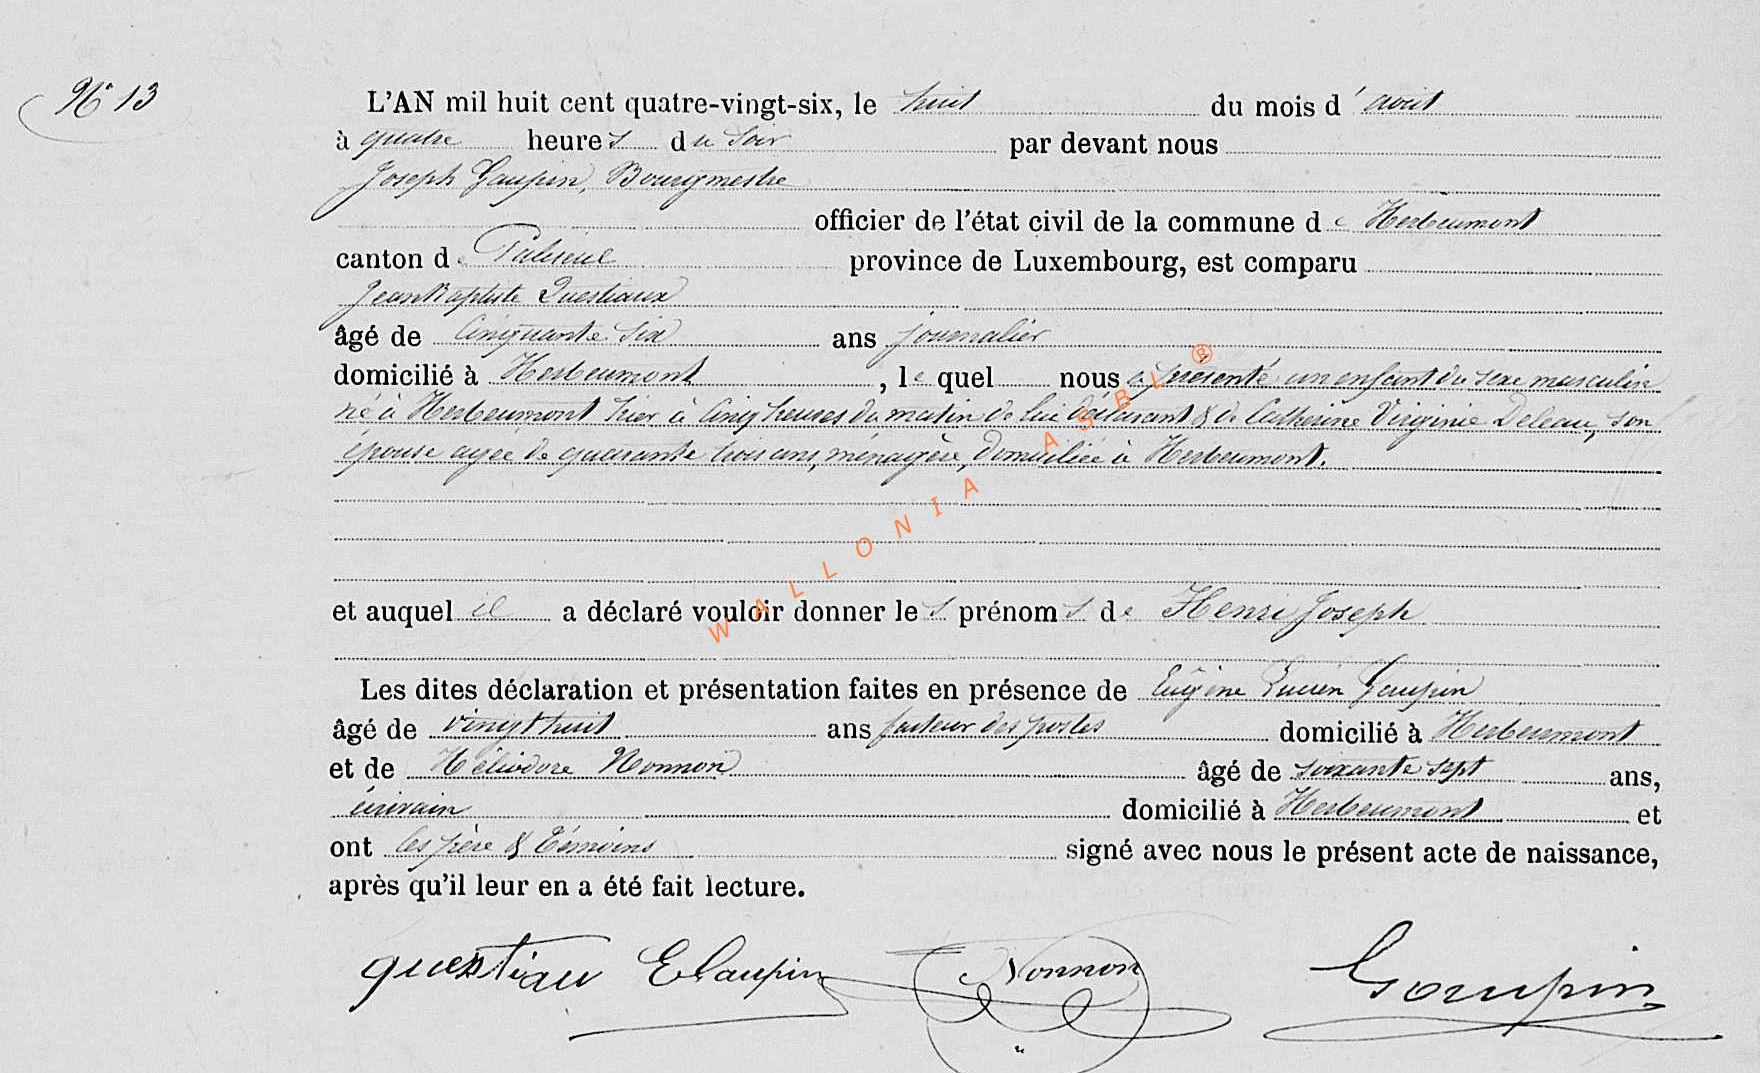 N° 13
L'AN mil huit cent quatre-vingt-six, le huit du mois d' avril
à quatre heures du soir par devant nous
Joseph Gaupin, Bourgmestre
officier de l'état civil de la commune de Herbeumont
canton de Paliseul province de Luxembourg, est comparu
Jean Baptiste Questiaux
âgé de cinquante six ans journalier
domicilié à Herbeumont, le quel nous a présenté un enfant du sexe masculin
né à Herbeumont hier à cinq heures du matin de lui déclarant & de Catherine Virginie Deleau, son
épouse agée de quarante trois ans, ménagère, domiciliée à Herbeumont.
et auquel il a déclaré vouloir donner les prénoms de Henri Joseph
Les dites déclaration et présentation faites en présence de Eugène Lucien Gaupin
âgé de vingt huit ans facteur des postes domicilié à Herbeumont
et de Héliodore Nonnon âgé de soixante sept ans,
écrivain domicilié à Herbeumont et
ont les père & témoins signé avec nous le présent acte de naissance,
après qu'il leur en a été fait lecture.
questiau E Gaupin Nonnon Gaupin
WALLONIA ASBL ®